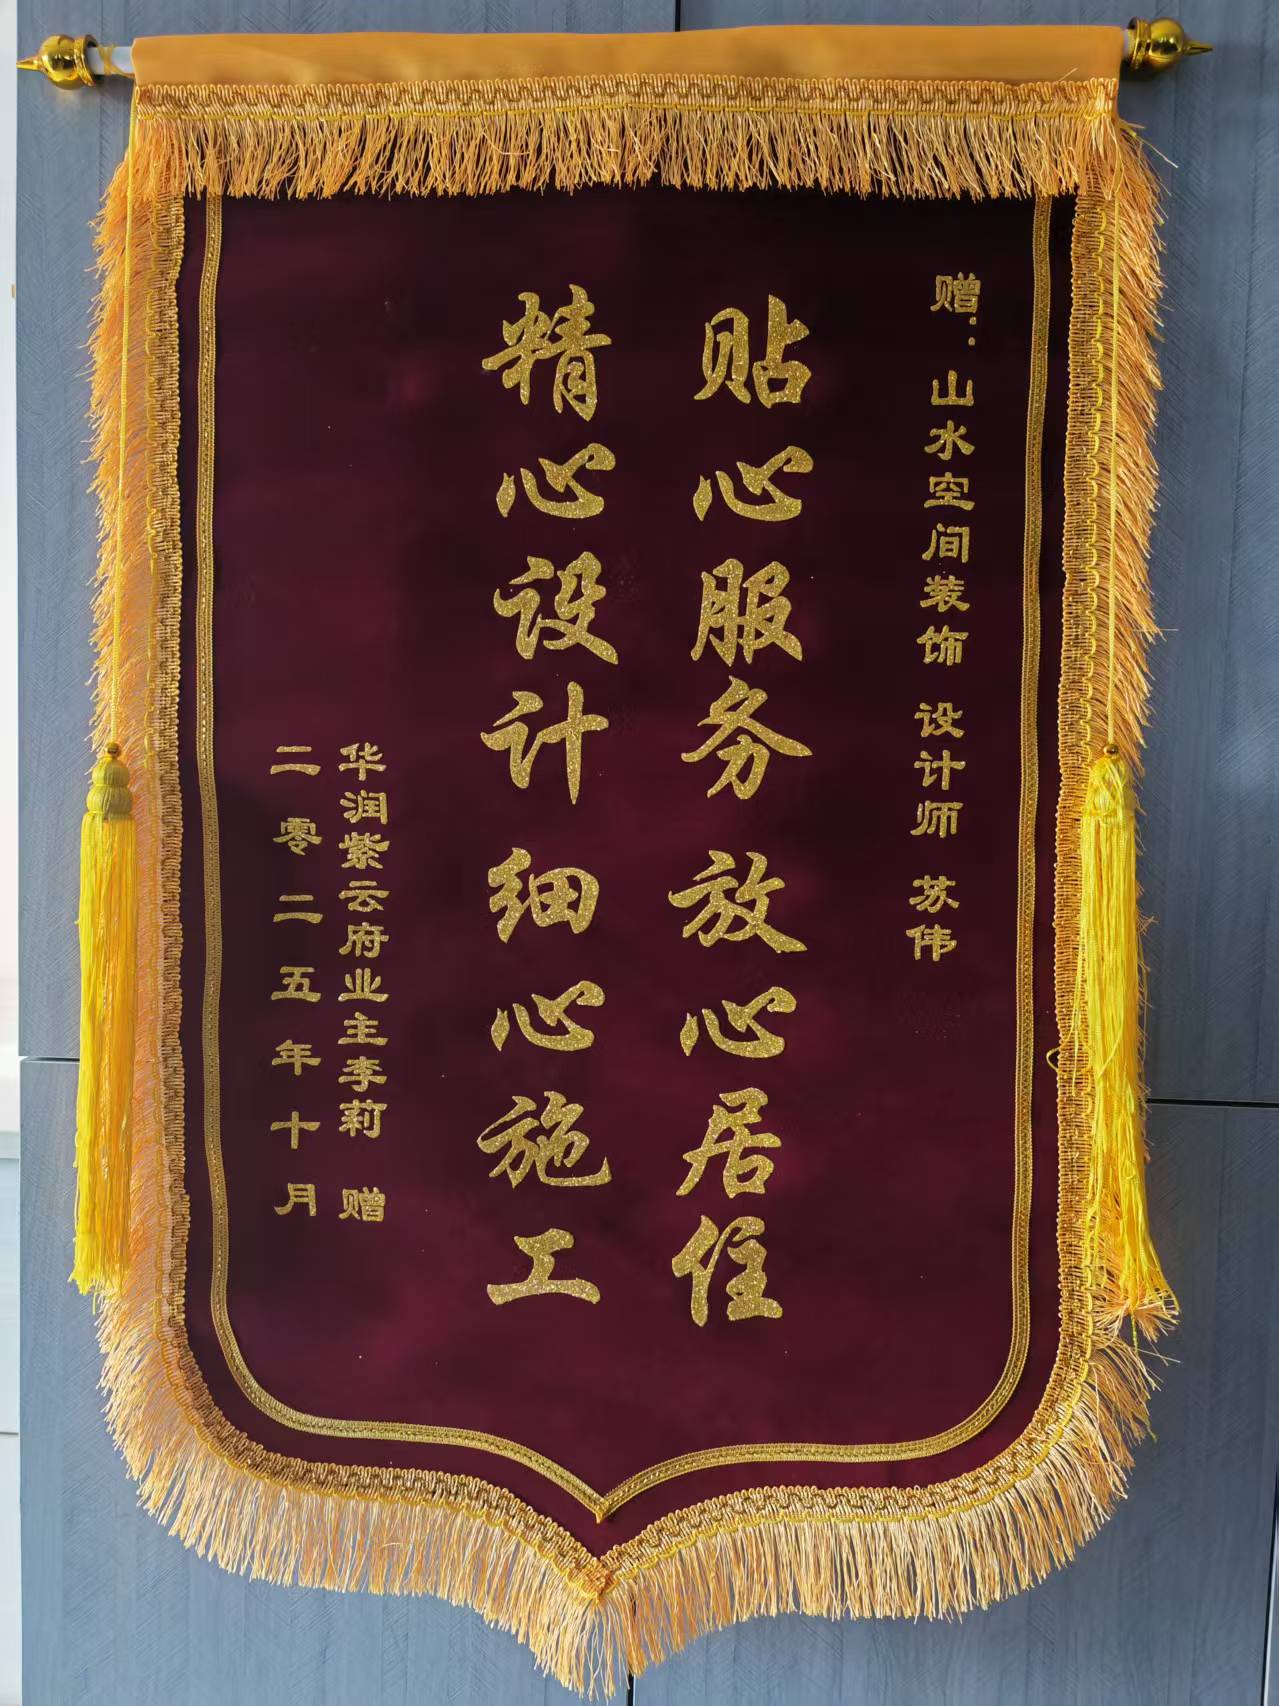 赠：山水空间装饰 设计师 苏伟
贴心服务放心居住
精心设计细心施工
华润紫云府业主李莉 赠
二零二五年十月